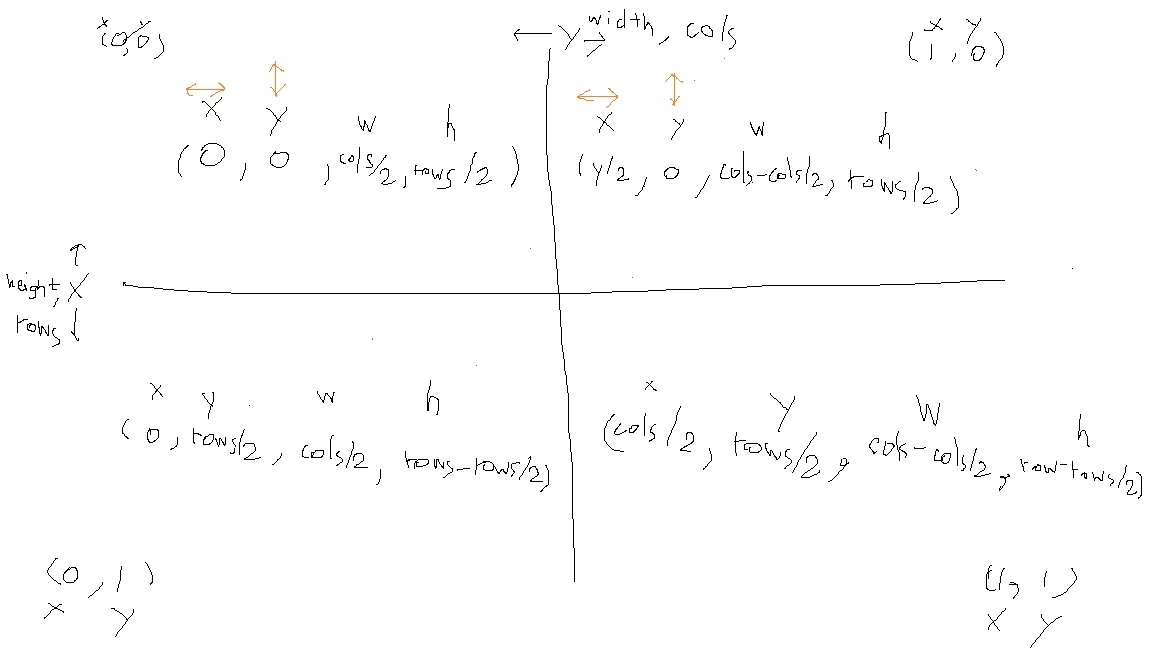 x y
(0,0)
← y → width, cols
x y
(1, 0)
x y w h
(0, 0, cols/2, rows/2)
x y w h
(y/2, 0, cols-cols/2, rows/2)
height, x
rows
x y w h
(0, rows/2, cols/2, rows-rows/2)
x y w h
(cols/2, rows/2, cols-cols/2, row-rows/2)
(0, 1)
x y
(1, 1)
x y